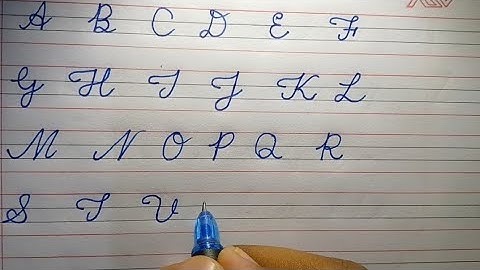 A B C D E F
G H I J K L
M N O P Q R
S T U